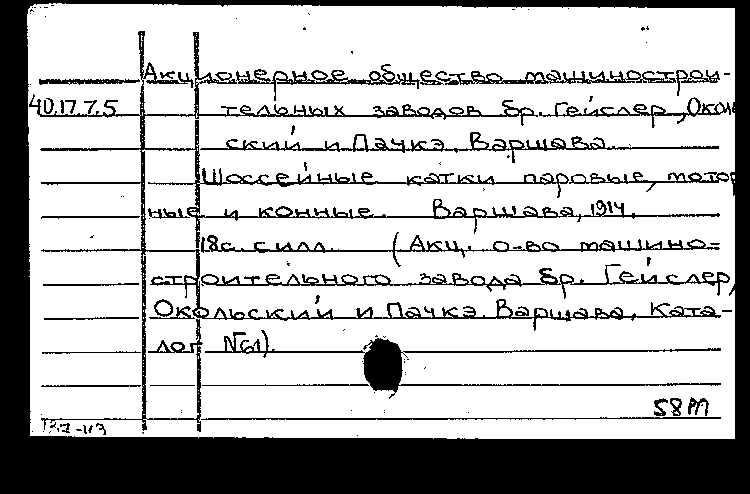 Акционерное общество машинострои-
40.17.7.5 тельных заводов бр. Гейслер, Околь
ский и Пачкэ. Варшава.
Шоссейные катки паровые, мотор
ные и конные. Варшава, 1914.
18с. с илл. (Акц. о-во машино-
строительного завода бр. Гейслер,
Окольский и Пачкэ. Варшава. Ката-
лог №61).
58М